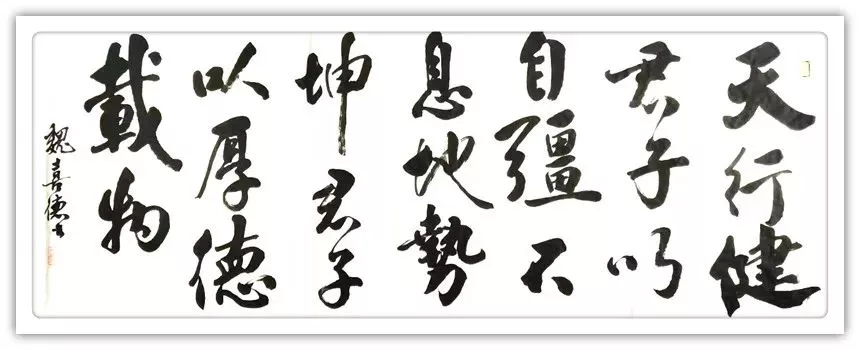 天行健
君子以
自彊不
息地勢
坤君子
以厚德
載物
魏喜德书